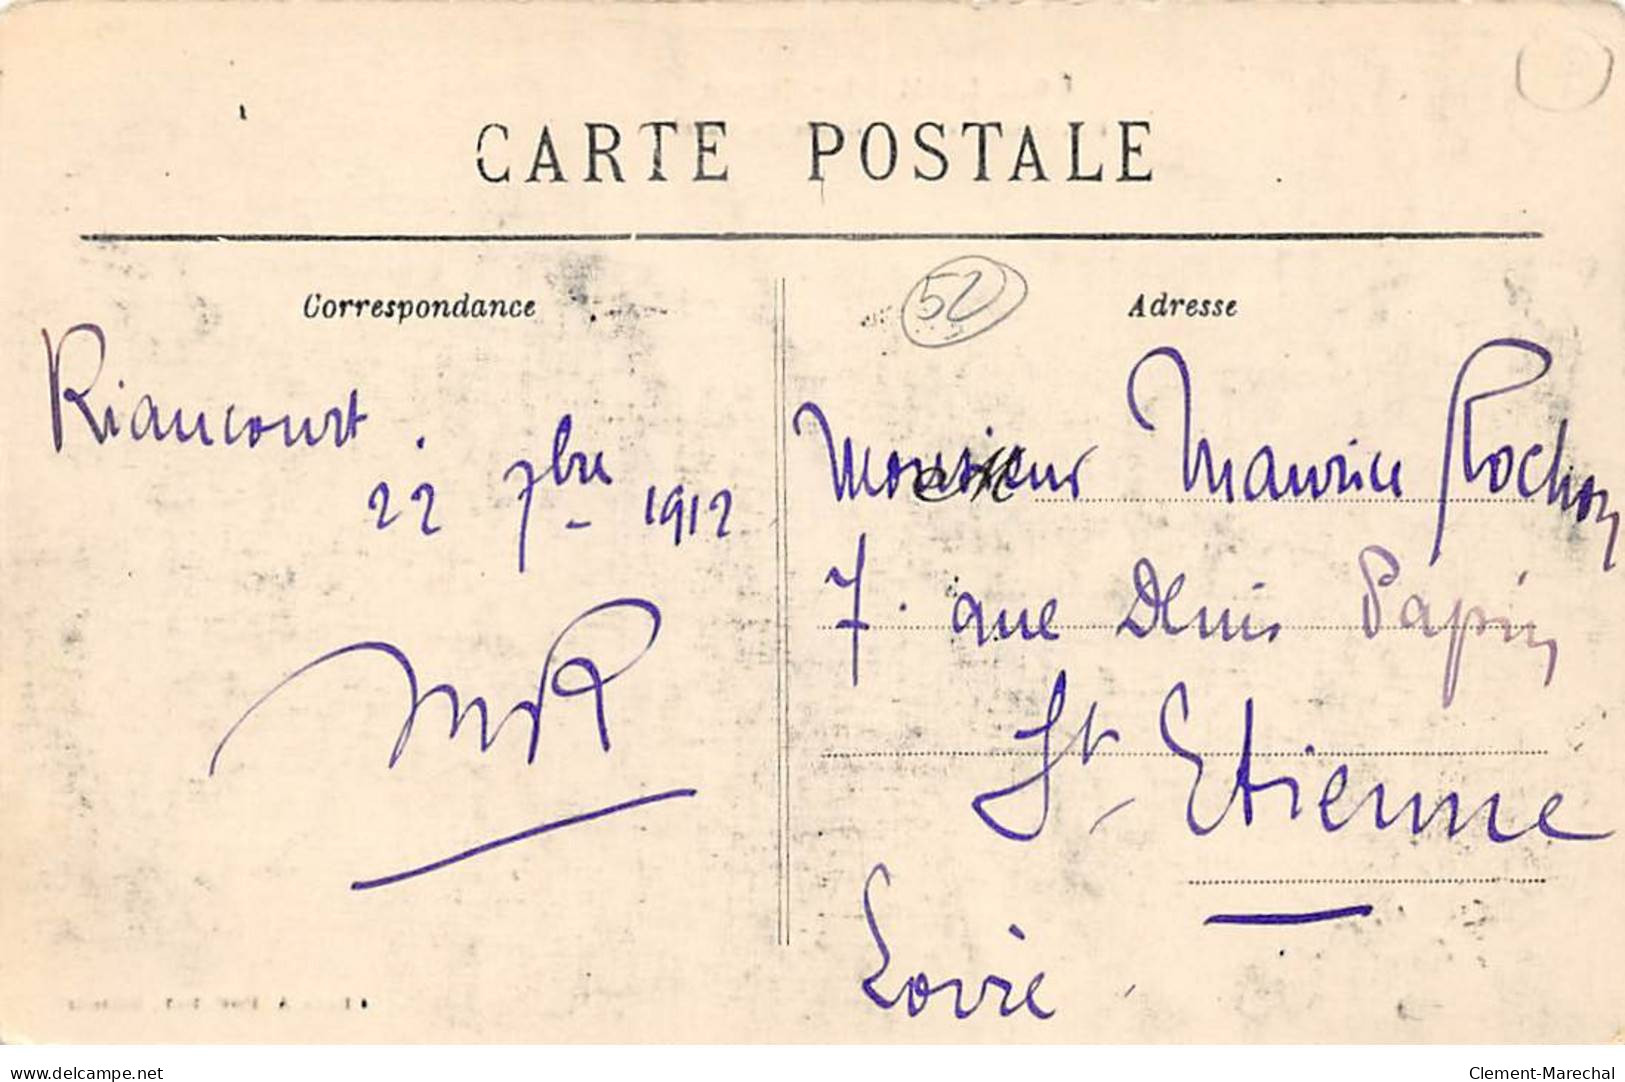 CARTE POSTALE
Correspondance
Riancourt
22 7bre 1912
MR
52
Adresse
Monsieur Maurice Rochon
7. rue Denis Papin
St. Etienne
Loire
www.delcampe.net
Clement-Marechal